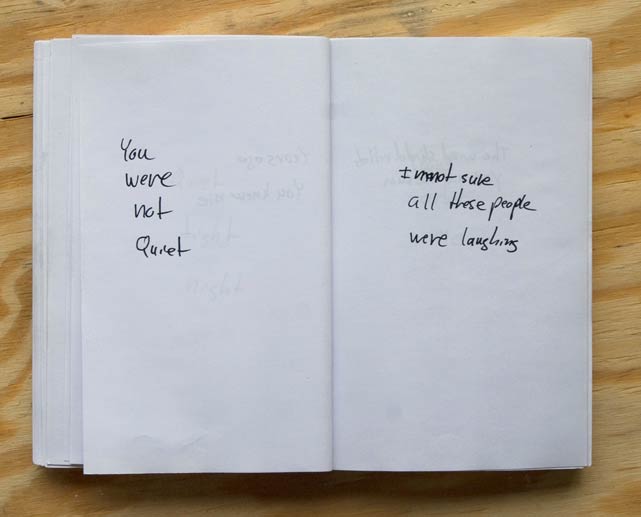 You
were
not
Quiet
I'm not sure
all these people
were laughing